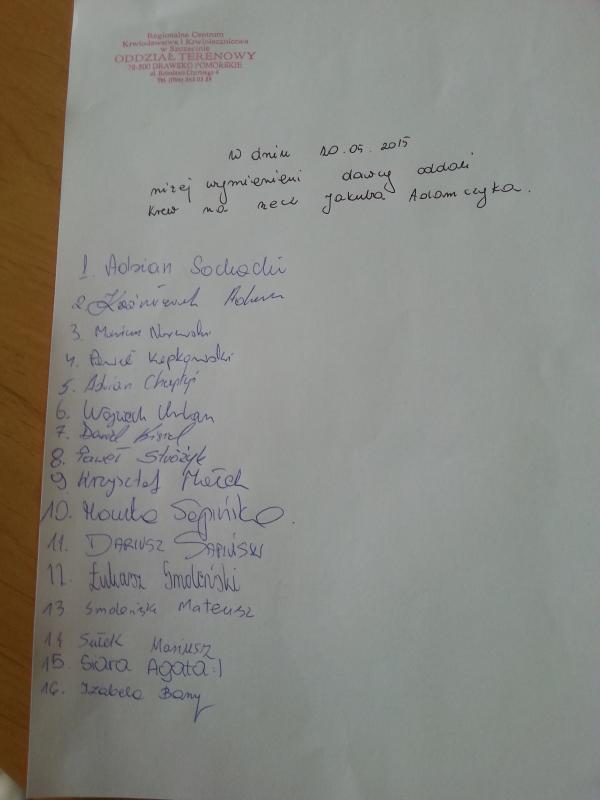 Regionalne Centrum
Krwiodawstwa i Krwiolecznictwa
w Szczecinie
ODDZIAŁ TERENOWY
78-500 DRAWSKO POMORSKIE
W dniu 20.05.2015
niżej wymienieni dawcy oddali
krew na rzecz Jakuba Adamczyka.
1. Adrian Sochacki
2. Kaźmierczak Adam
3. Mariusz
4. Paweł Kępkowski
5. Adrian
6. Wojciech Urban
7. Daniel Kisiel
8. Paweł Stróżyk
9 Krzysztof Małek
10. Monika Sapińska.
11. DARIUSZ SAPIŃSKI
12. Łukasz Smoleński
13. Smoleńska Mateusz
14 Sałek Mariusz
15. Siara Agata :)
16. Izabela Bany